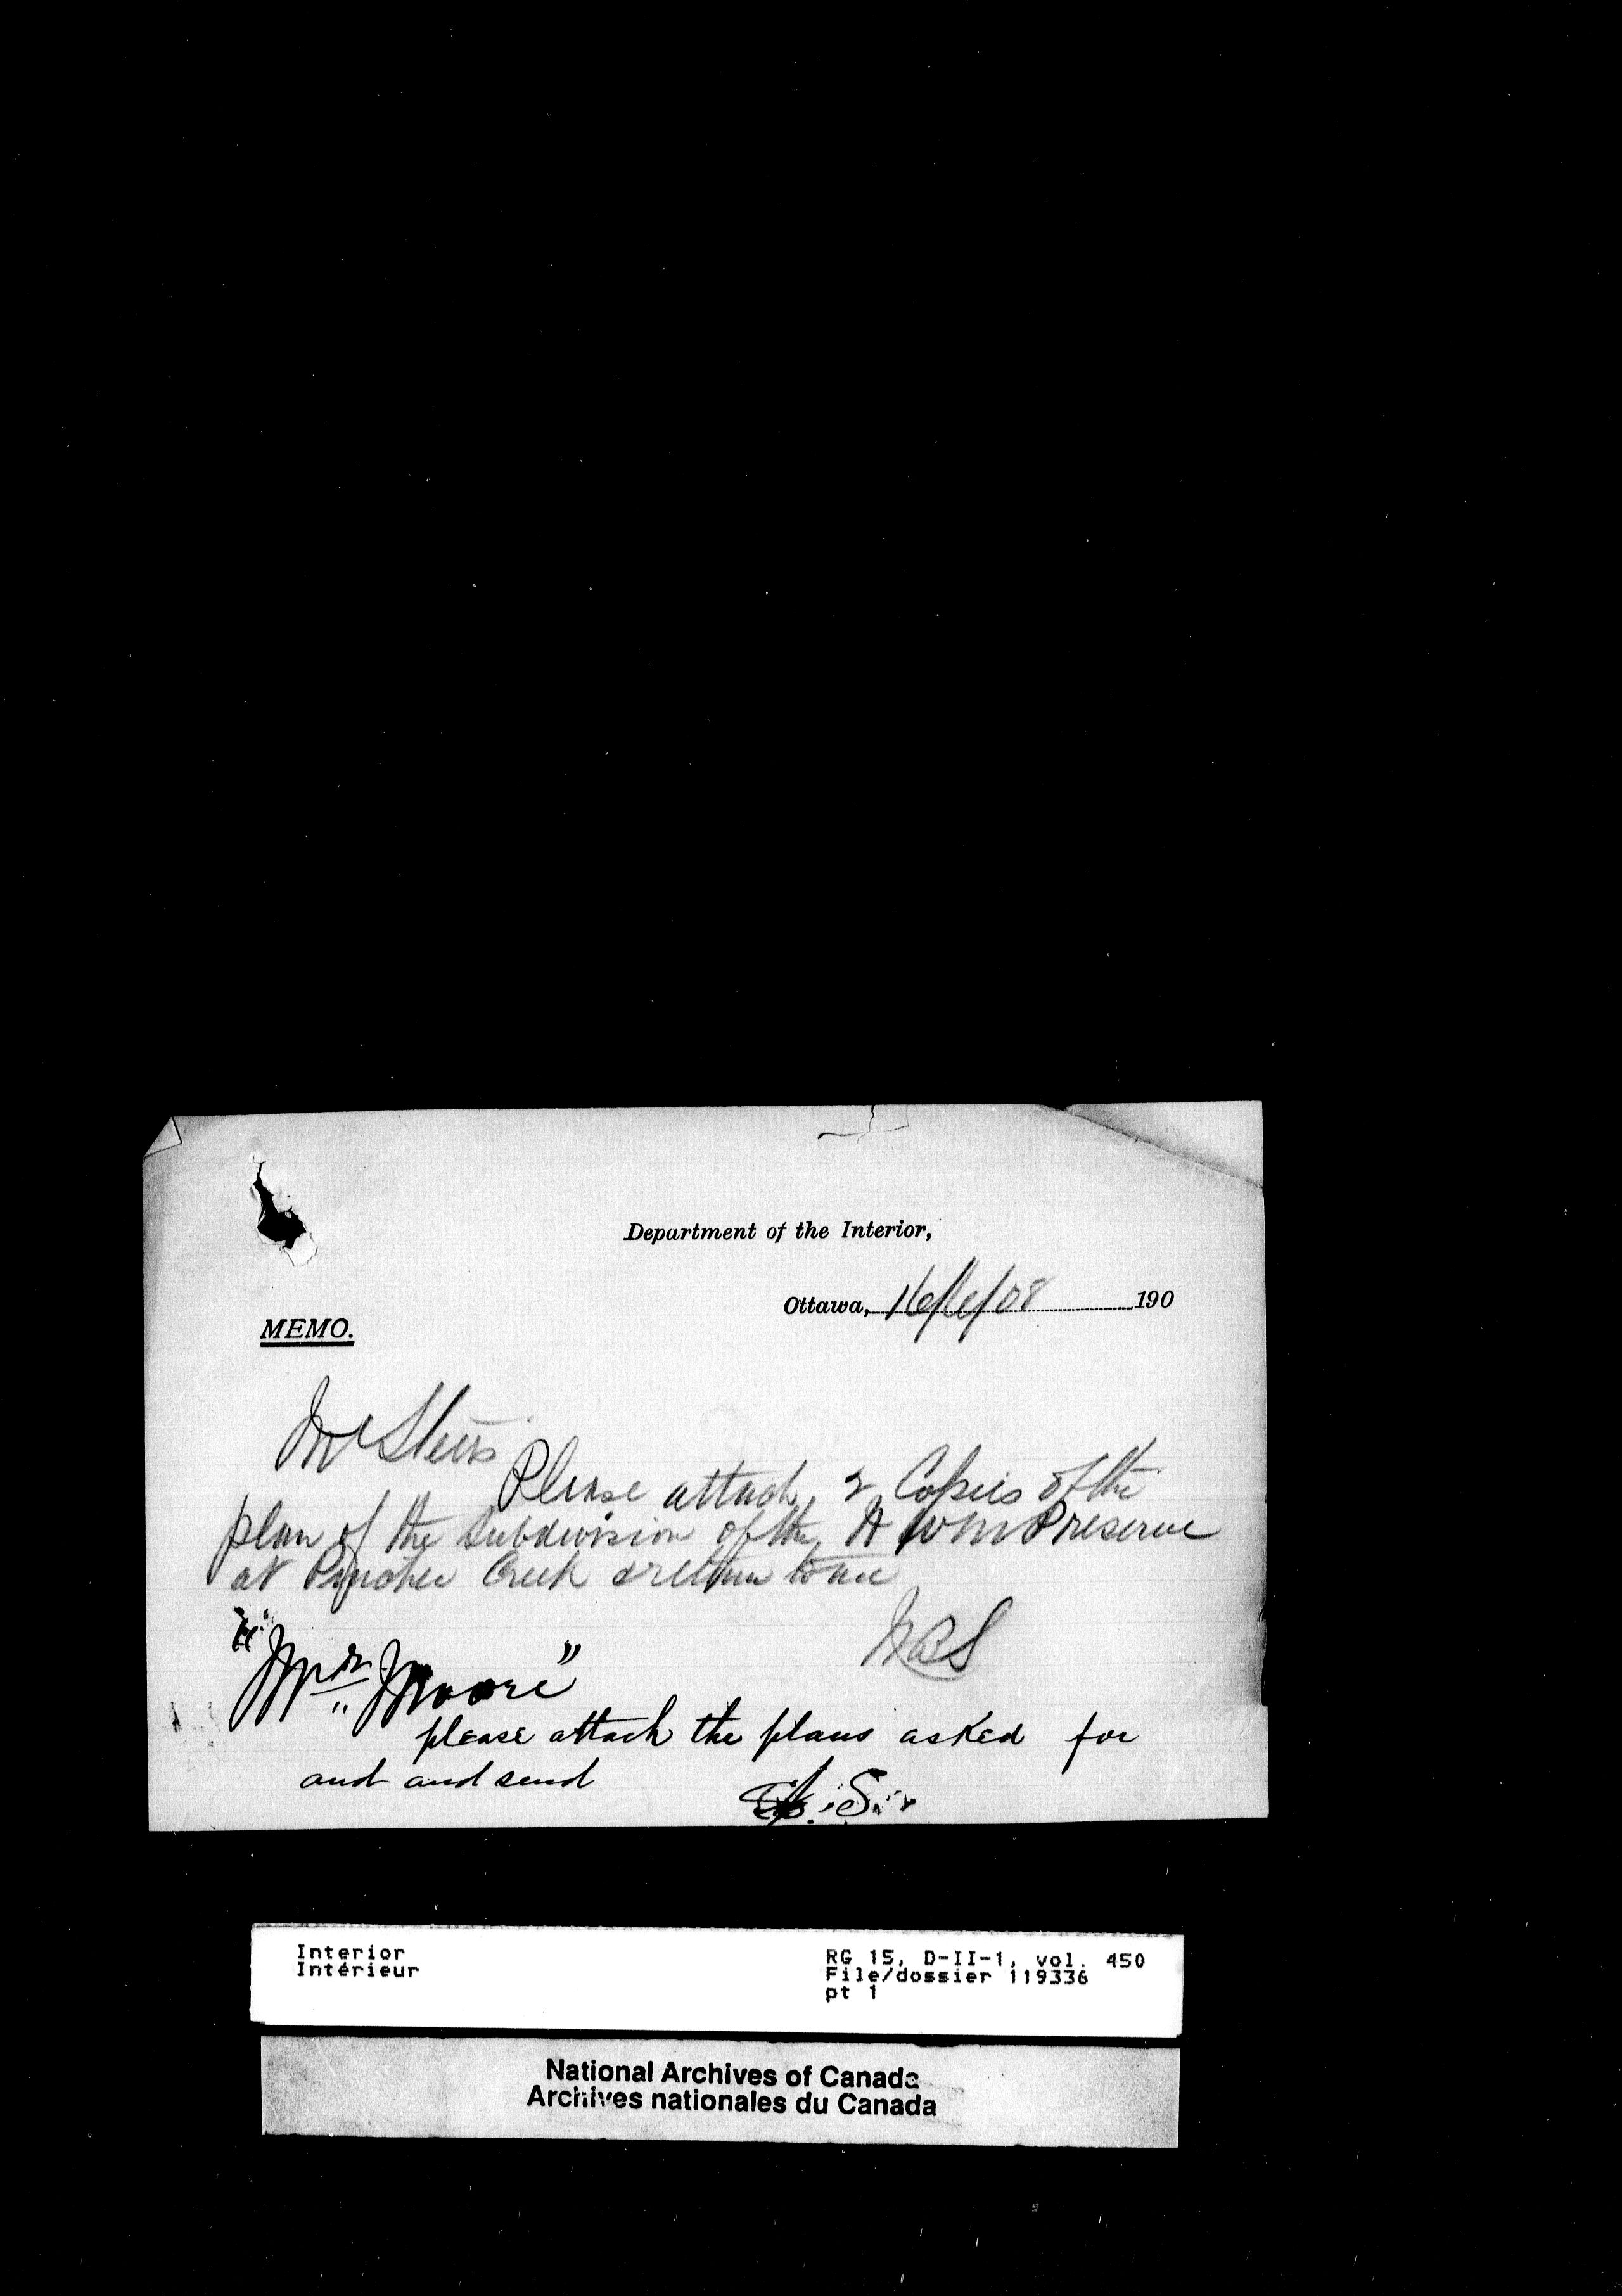 Department of the Interior,
Ottawa, 16/6/08 190
MEMO.
Mr
Please attach 2 Copies of the
plan of the Subdivision of the N W M P reserve
at Pincher Creek & return to me
"Mr. Moore"
please attach the plans asked for
and and send
Interior
Intérieur
RG 15, D-II-1, vol. 450
File/dossier 119336
pt 1
National Archives of Canada
Archives nationales du Canada